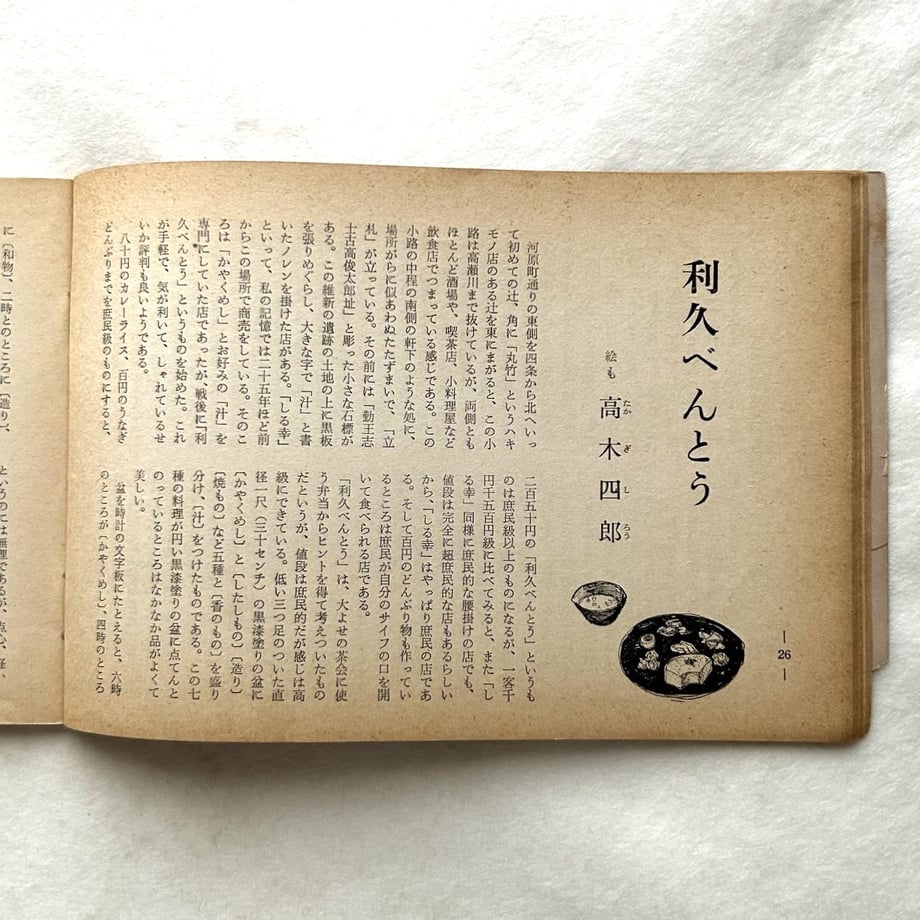 利久べんとう
絵も 高木四郎
たか ぎ し ろう
河原町通りの東側を四条から北へいっ
て初めての辻、角に「丸竹」というハキ
モノ店のある辻を東にまがると、この小
路は高瀬川まで抜けているが、両側とも
ほとんど酒場や、喫茶店、小料理屋など
飲食店でつまっている感じである。この
小路の中程の南側の軒下のような処に、
場所がらに似あわぬたたずまいで、「立
札」が立っている。その前には「勤王志
士古高俊太郎址」と彫った小さな石標が
ある。この維新の遺跡の土地の上に黒板
を張りめぐらし、大きな字で「汁」と書
いたノレンを掛けた店がある。「しる幸」
といって、私の記憶では二十五年ほど前
からこの場所で商売をしている。そのこ
ろは「かやくめし」とお好みの「汁」を
専門にしていた店であったが、戦後に「利
久べんとう」というものを始めた。これ
が手軽で、気が利いて、しゃれているせ
いか評判も良いようである。
八十円のカレーライス、百円のうなぎ
どんぶりまでを庶民級のものにすると、
二百五十円の「利久べんとう」というも
のは庶民級以上のものになるが、一客千
円千五百円級に比べてみると、また「し
る幸」同様に庶民的な腰掛けの店でも、
値段は完全に超庶民的な店もあるらしい
から、「しる幸」はやっぱり庶民の店であ
る。そして百円のどんぶり物も作ってい
るところは庶民が自分のサイフの口を開
いて食べられる店である。
「利久べんとう」は、大よせの茶会に使
う弁当からヒントを得て考えついたもの
だというが、値段は庶民的だが感じは高
級にできている。低い三つ足のついた直
径一尺(三十センチ)の黒漆塗りの盆に
〔かやくめし〕と〔したしもの〕〔造り〕
〔焼もの〕など五種と〔香のもの〕を盛り
分け、〔汁〕をつけたものである。この七
種の料理が円い黒漆塗りの盆に点てんと
のっているところはなかなか品がよくて
美しい。
盆を時計の文字板にたとえると、六時
のところが〔かやくめし〕、四時のところ
26
に〔和物〕、二時とのところに〔造り〕、
というのには無理であるが、点心、軽い